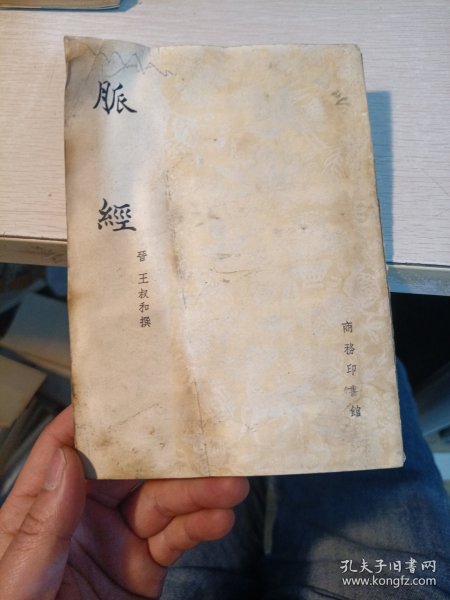 脈經
晉 王叔和撰
商務印書館
孔夫子旧书网
www.kongfz.com